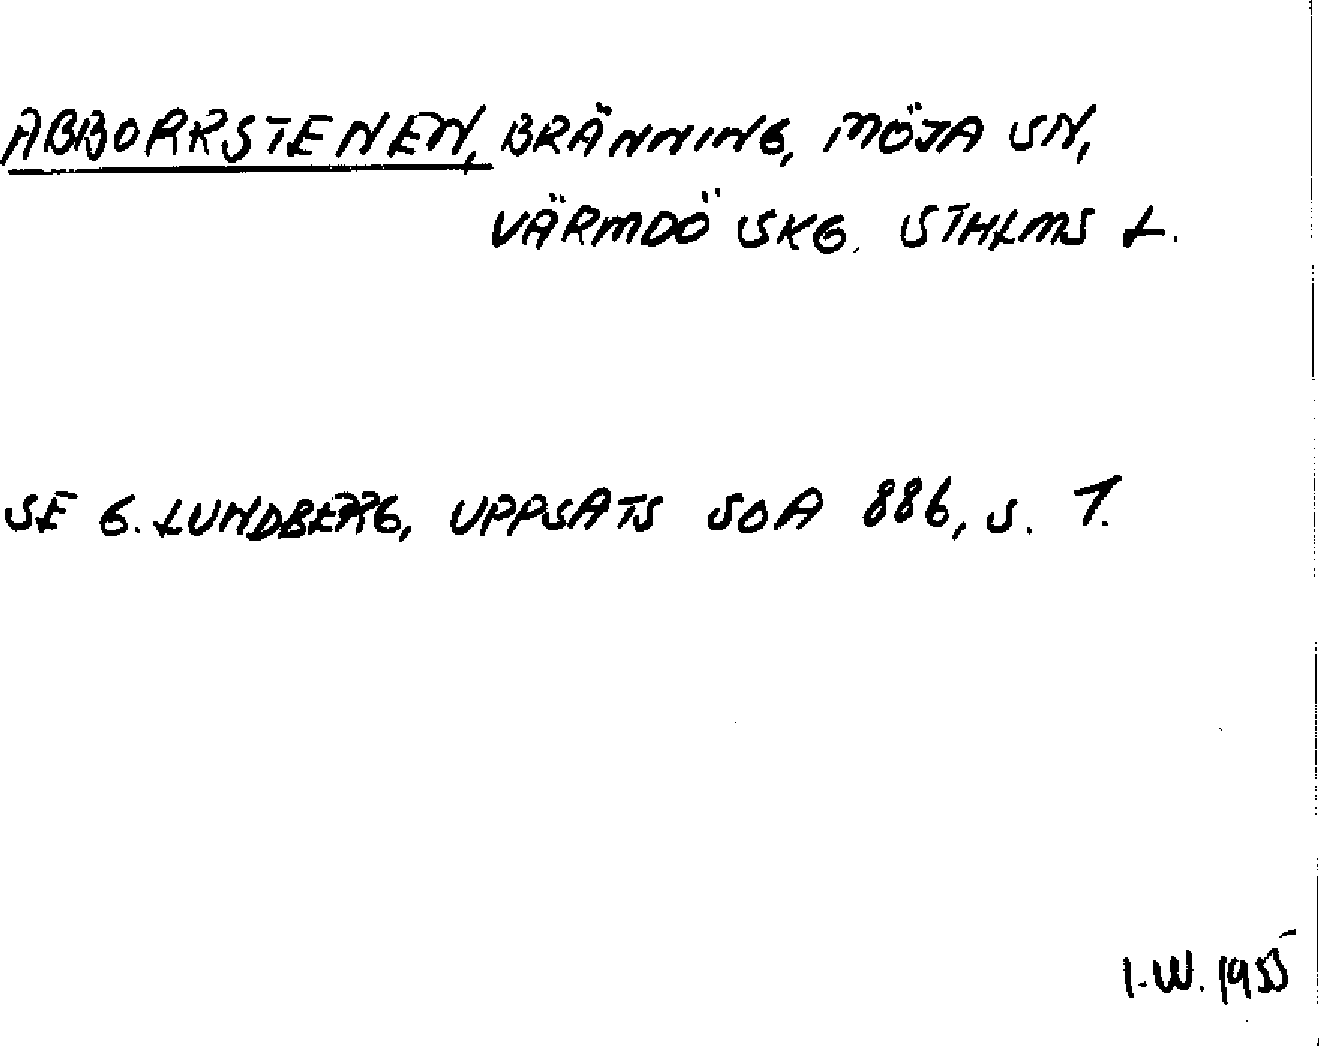 ABBORRSTENEN, BRÄNNING, MÖJA SN,
VÄRMDÖ SKG. STHLMS L.
SE G. LUNDBERG, UPPSATS SOA 886, s. 7.
I.W. 1955